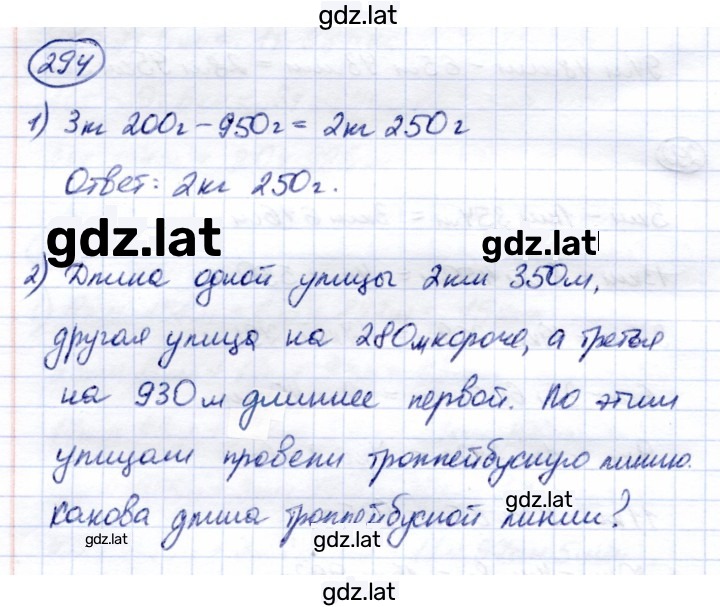 gdz.lat
294
1) 3кг 200г – 950г = 2кг 250г
Ответ: 2кг 250г.
gdz.lat
gdz.lat
2) Длина одной улицы 2км 350м,
другая улица на 280м короче, а третья
на 930м длиннее первой. По этим
улицам провели троллейбусную линию.
Какова длина троллейбусной линии?
gdz.lat
gdz.lat
gdz.lat
gdz.lat